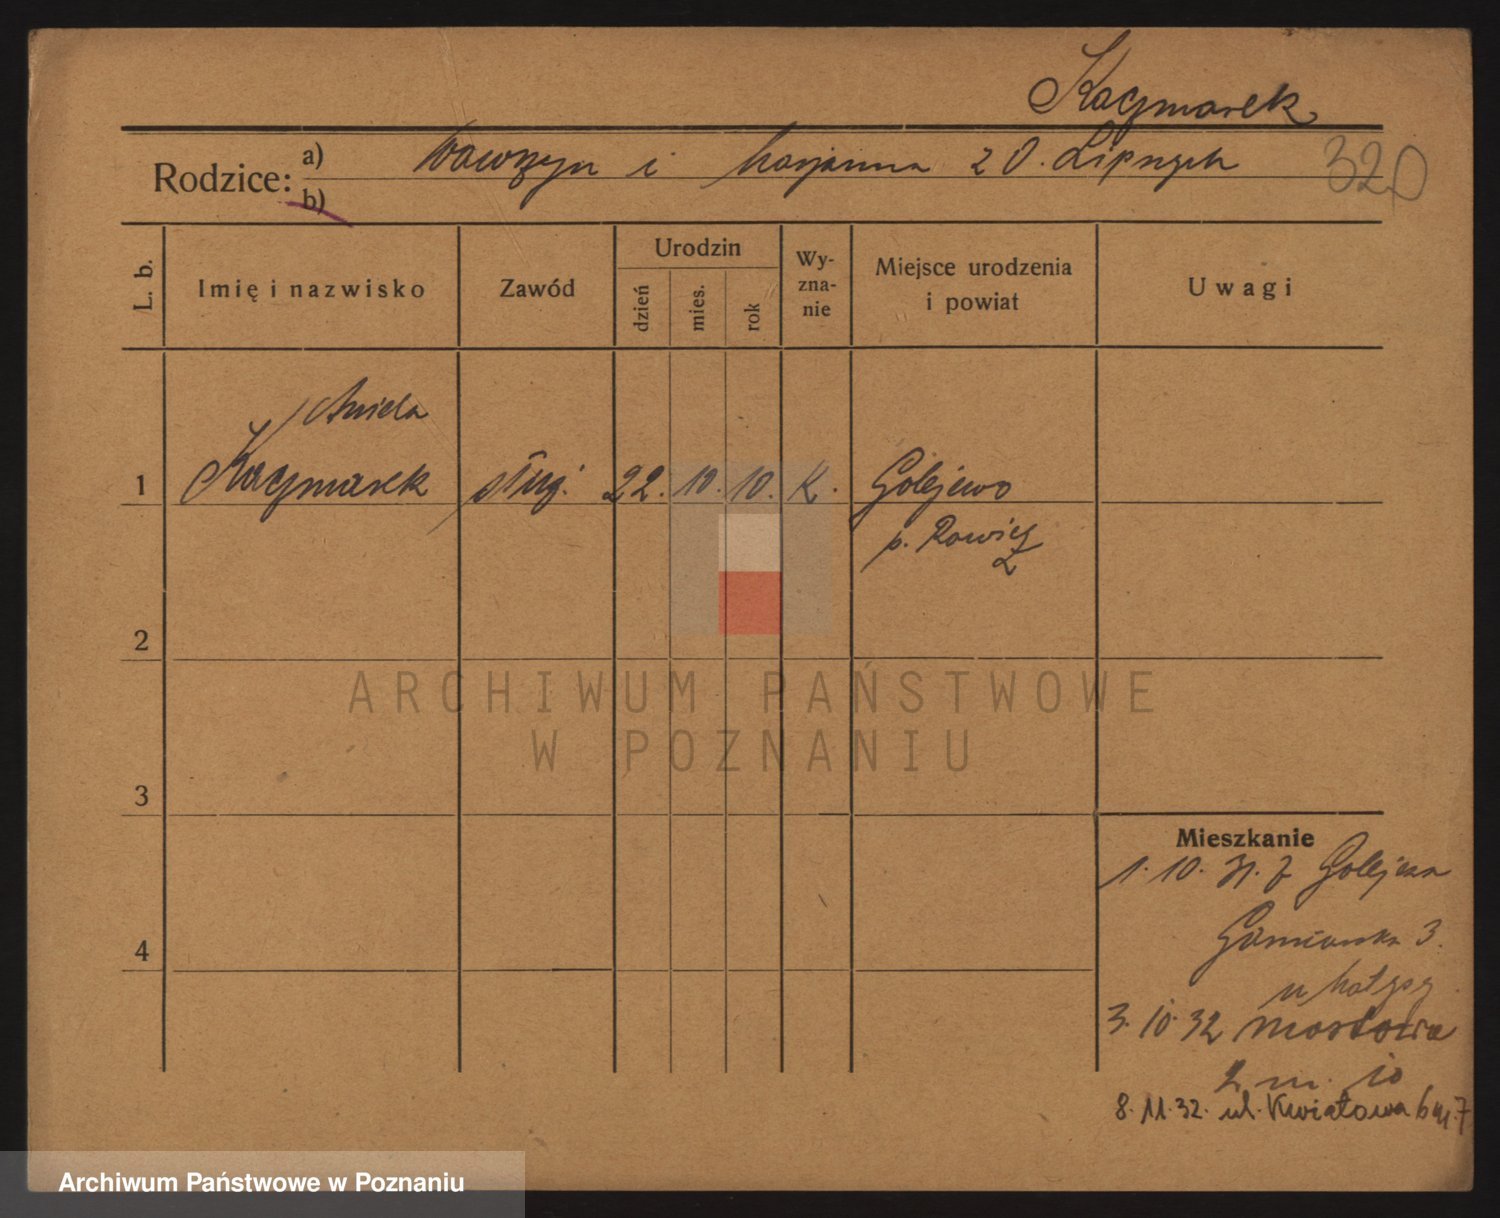 Kaczmarek
Rodzice: a) Wawrzyn i Marjanna z d. Lipnych
320
b)
L. b. Imię i nazwisko Zawód Urodzin dzień mies. rok Wy-zna-nie Miejsce urodzenia i powiat Uwagi
Aniela
1 Kaczmarek służ. 22. 10. 10. K. Golejewo
p. Rawicz
2
ARCHIWUM PAŃSTWOWE
W POZNANIU
3
Mieszkanie
1. 10. 31. z Golejewa
4
3.
u
3. 10. 32 Mostowa
2 m. 10
8. 11. 32. ul. Kwiatowa 6 m. 7
Archiwum Państwowe w Poznaniu